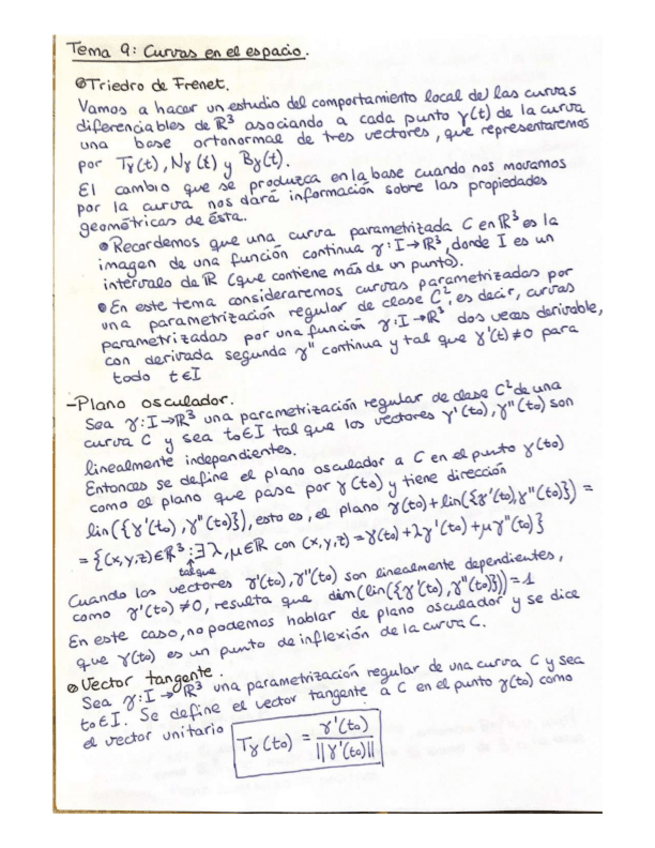 Tema 9: Curvas en el espacio.
Triedro de Frenet.
Vamos a hacer un estudio del comportamiento local de las curvas
diferenciables de ℝ³ asociando a cada punto γ(t) de la curva
una base ortonormal de tres vectores, que representaremos
por Tγ(t), Nγ(t) y Bγ(t).
El cambio que se produzca en la base cuando nos movamos
por la curva nos dará información sobre las propiedades
geométricas de ésta.
Recordemos que una curva parametrizada C en ℝ³ es la
imagen de una función continua γ: I → ℝ³, donde I es un
intervalo de ℝ (que contiene más de un punto).
En este tema consideraremos curvas parametrizadas por
una parametrización regular de clase C², es decir, curvas
parametrizadas por una función γ: I → ℝ³ dos veces derivable,
con derivada segunda γ'' continua y tal que γ'(t) ≠ 0 para
todo t ∈ I
- Plano osculador.
Sea γ: I → ℝ³ una parametrización regular de clase C² de una
curva C y sea t₀ ∈ I tal que los vectores γ'(t₀), γ''(t₀) son
linealmente independientes.
Entonces se define el plano osculador a C en el punto γ(t₀)
como el plano que pasa por γ(t₀) y tiene dirección
lin({γ'(t₀), γ''(t₀)}), esto es, el plano γ(t₀) + lin({γ'(t₀), γ''(t₀)}) =
= {(x,y,z) ∈ ℝ³ : ∃ λ, μ ∈ ℝ con (x,y,z) = γ(t₀) + λγ'(t₀) + μγ''(t₀)}
tal que
Cuando los vectores γ'(t₀), γ''(t₀) son linealmente dependientes,
como γ'(t₀) ≠ 0, resulta que dim(lin({γ'(t₀), γ''(t₀)})) = 1
En este caso, no podemos hablar de plano osculador y se dice
que γ(t₀) es un punto de inflexión de la curva C.
Vector tangente.
Sea γ: I → ℝ³ una parametrización regular de una curva C y sea
t₀ ∈ I. Se define el vector tangente a C en el punto γ(t₀) como
el vector unitario Tγ(t₀) = γ'(t₀) / ||γ'(t₀)||